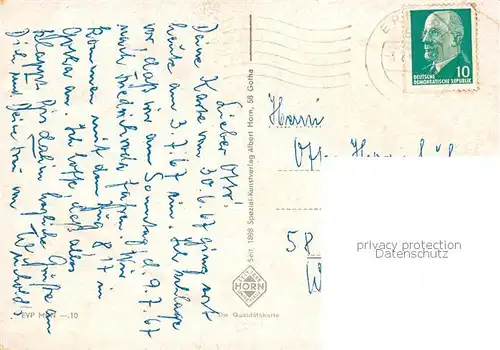 Lieber Otto!
Deine Karte vom 30.6.67 ging erst
heute am 3.7.67 ein. Ich schlage
vor, daß wir am Sonntag, d. 9.7.67
nach Friedrichroda fahren. Wir
kommen mit dem Zug 8¹⁷ in
Gotha an. Ich hoffe, daß alles
klappt. Bis dahin herzliche Grüße an
Dich und Deine von
EVP MDN —.10
Seit 1898 Spezial-Kunstverlag Albert Horn, 58 Gotha
HORN
Die Qualitätskarte
DEUTSCHE
DEMOKRATISCHE REPUBLIK
10
Herrn
58
privacy protection
Datenschutz